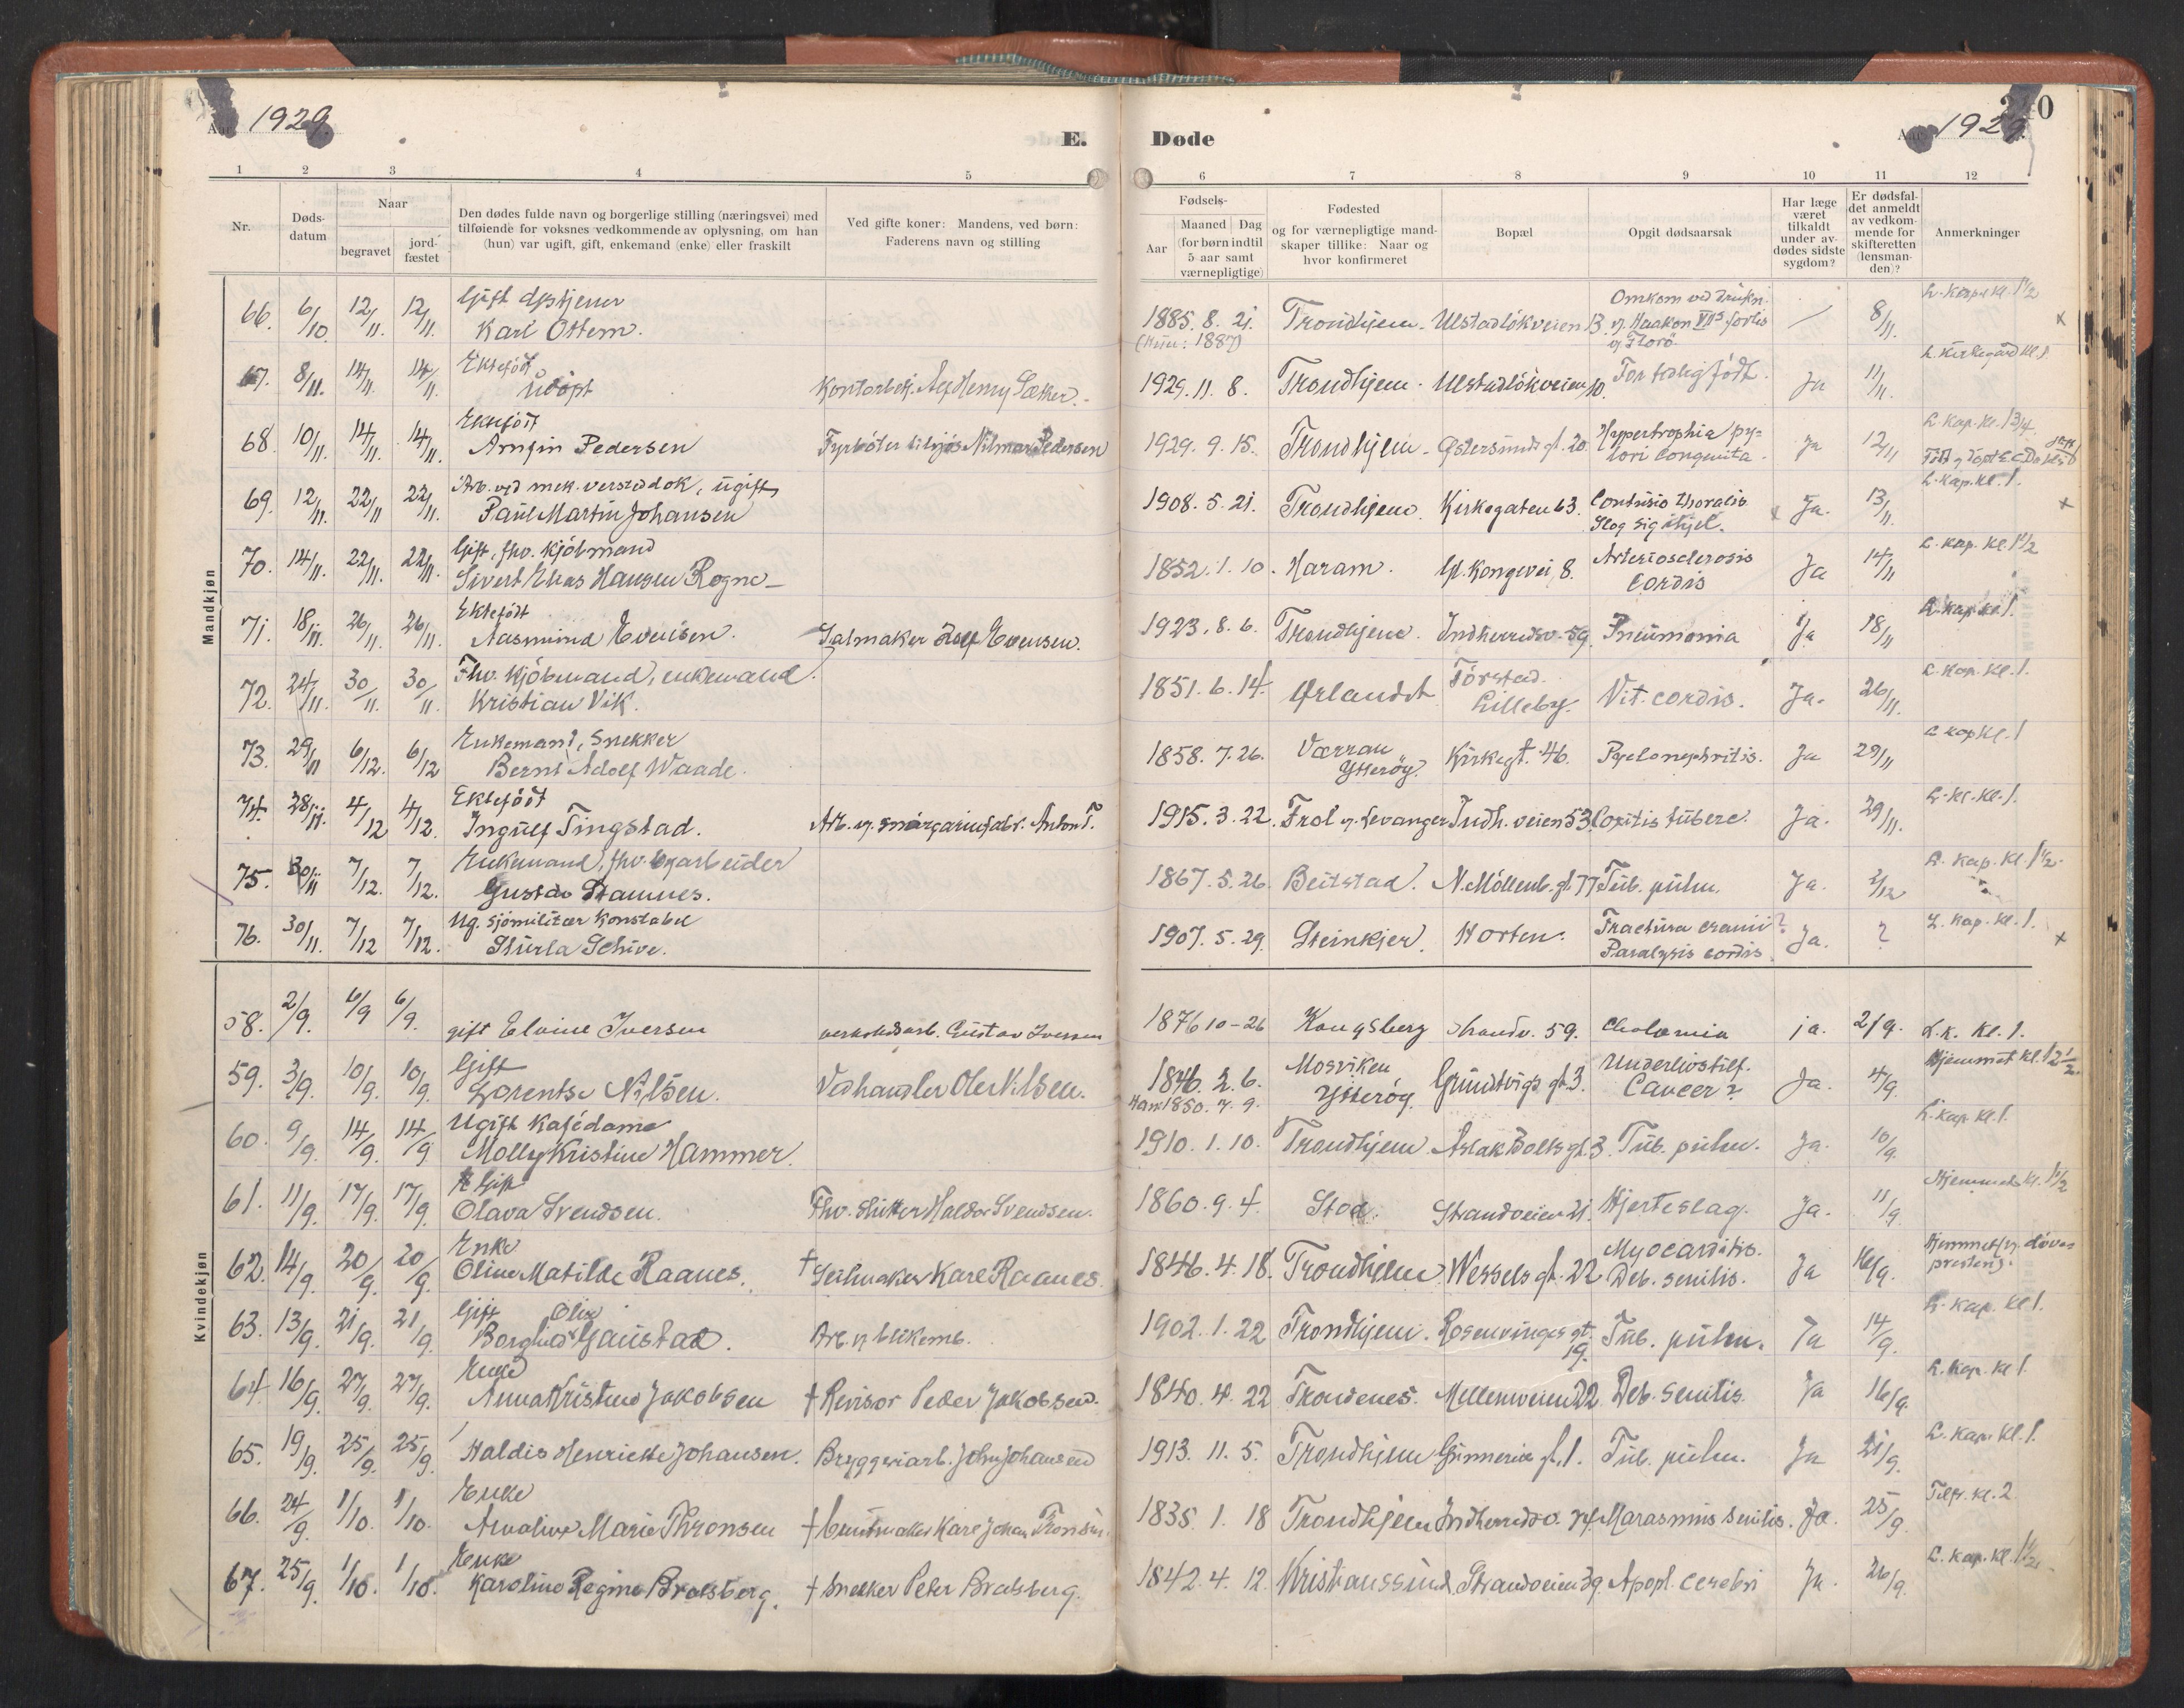 1929.
E.
Døde
1929.
1 2 3 4 5 6 7 8 9 10 11 12
Nr.
Dødsdatum
Naar
begravet
jordfæstet
Den dødes fulde navn og borgerlige stilling (næringsvei) med
tilføiende for voksnes vedkommende av oplysning, om han
(hun) var ugift, gift, enkemand (enke) eller fraskilt
Ved gifte koner: Mandens, ved børn:
Faderens navn og stilling
Fødsels-
Aar
Maaned Dag
(for børn indtil
5 aar samt
værnepligtige)
Fødested
og for værnepligtige mand-
skaper tillike: Naar og
hvor konfirmeret
Bopæl
Opgit dødsaarsak
Har læge
været
tilkaldt
under av-
dødes sidste
sygdom?
Er dødsfal-
det anmeldt
av vedkom-
mende for
skifteretten
(lensman-
den)?
Anmerkninger
Mandkjøn
66. 6/10. 12/11. 12/11. Gift
Karl Ottem. 1885. 8. 21. Trondhjem. Ulstadlökveien 13 Omkom ved drukn.
v. Haakon VII's forlis
v/ Florö 8/11. L. kapel kl. 1 1/2 x
67. 8/11. 14/11. 14/11. Ektefödt
Udöpt Kontorbetj. Alf Henry Sæther. 1929. 11. 8. Trondhjem. Ulstadlökveien 10. For tidlig födt. Ja 11/11. L. Kirkegård kl. 1.
68. 10/11. 14/11. 14/11. Ektefödt
Arnfin Pedersen Fyrböter Hilmar Pedersen 1929. 9. 15. Trondhjem Østersunds gt. 20. Hypertrophia py-
lori congenita. Ja 12/11 L. Kap. kl. 1 3/4
69. 12/11. 22/11 22/11. Arb. ved mek. verksted ok, ugift
Paul Martin Johansen 1908. 5. 21. Trondhjem. Kirkegaten 63. Contusio thoralis
Slog sig ihjel. x Ja. 13/11. L. kap. kl. 1. x
70. 14/11. 22/11. 22/11. Gift, fhv. kjöbmand
Sivert Elias Hansen Rogne 1852. 1. 10. Haram. Gl. Kongevei 8. Arteriosclerosis
cordis Ja 14/11 L. kap. kl. 1 1/2
71. 18/11. 26/11. 26/11. Ektefödt
Aasmund Evensen. Salmaker Adolf Evensen. 1923. 8. 6. Trondhjem. Indherredsv. 59. Pneumonia Ja 18/11 L. kap kl 1.
72. 24/11. 30/11. 30/11. Fhv. kjöbmand, enkemand.
Kristian Vik. 1851. 6. 14. Ørlandet Törstad
Lilleby. Vit. cordis. Ja. 26/11. L. kap. kl. 1.
73. 29/11 6/12. 6/12 Enkemand, snekker
Bernt Adolf Waade. 1858. 7. 26. Værran
Ytterøy. Kirkegt. 46. Pyelonephritis. Ja 29/11 L kap kl. 1
74. 28/11. 4/12 4/12. Ektefödt
Ingulf Tingstad. Arb. v. margarinfabr. Anton T. 1915. 3. 22. Frol v. Levanger Indh. veien 53 Coxitis tuberc. Ja. 29/11. L. k. kl. 1.
75. 30/11 7/12. 7/12. Enkemand, fhv. byarbeider
Gustav Stamnes. 1867. 5. 26. Beitstad. N. Möllenb. gt 77 Tub. pulm. Ja. 2/12 L. kap. kl. 1 1/2.
76. 30/11. 7/12 7/12. Ug. sjömilitær konstabel
Sturla Schive. 1907. 5. 29. Steinkjer. Horten. Fractura cranii?
Paralysis cordis. Ja. ? L. kap. kl. 1. x
Kvindekjøn
58. 2/9. 6/9 6/9. gift Elvine Iversen verkstedsarb. Gustav Iversen 1876 10-26 Kongsberg Strandv. 59. Cholæmia ja. 2/9. L. k. kl. 1.
59. 3/9. 10/9. 10/9. Gift
Lorentse Nilsen. Vedhandler Ole Nilsen. 1846. 2. 6. Mosviken
Ytterøy. Grundtvigs gt. 3. Underlivstilf.
Cancer? Ja. 4/9. Hjemmet kl. 12 1/2.
1850. 7. 9.
60. 9/9. 14/9. 14/9 Ugift Kafédame
Molly Kristine Hammer. 1910. 1. 10. Trondhjem Aslak Bolts gt. 3. Tub. pulm. Ja. 10/9. L. kap. kl. 1.
61. 11/9. 17/9. 17/9. Gift
Olava Svendsen. Fhv. Haldor Svendsen. 1860. 9. 4. Stod. Strandveien 21. Hjerteslag. Ja. 11/9 Hjemmet kl. 1 1/2
62. 14/9. 20/9. 20/9. Enke
Oline Matilde Raanes. † Seilmaker Karl Raanes. 1846. 4. 18. Trondhjem Wessels gt. 22 Myocarditis.
Deb. senilis. Ja 16/9. Hjemmet v. döves
presten.
63. 13/9. 21/9. 21/9. Gift Oliv
Borghild Gaustad. Arb. v blikemb. 1902. 1. 22 Trondhjem. Rosenvinges gt. 19. Tub. pulm. Ja 14/9. L. kap. kl 1.
64 16/9. 27/9. 27/9. Enke
Anna Kristine Jakobsen † Revisor Peder Jakobsen. 1840. 4. 22 Trondenes. Mellemveien 22 Deb. senilis. Ja 16/9. L. kap. kl 1.
65. 19/9. 25/9. 25/9. Haldis Henriette Johansen. Bryggeriarb. John Johansen 1913. 11. 5. Trondhjem Gunnerus gt. 1. Tub. pulm. Ja 21/9. L. kap. kl. 1.
66. 24/9. 1/10. 1/10. Enke
Marie Thronsen † Buntmaker Karl Johan Tronsen. 1835. 1. 18 Trondhjem Indherredsv. Marasmus senilis. Ja. 25/9. kl. 2
67. 25/9. 1/10. 1/10. Enke
Karoline Regine Bratsberg. † Snekker Peter Bratsberg. 1842. 4. 12. Kristianssund. Strandveien 39. Apopl. cerebri Ja. 26/9. L. kap. kl. 1 1/2